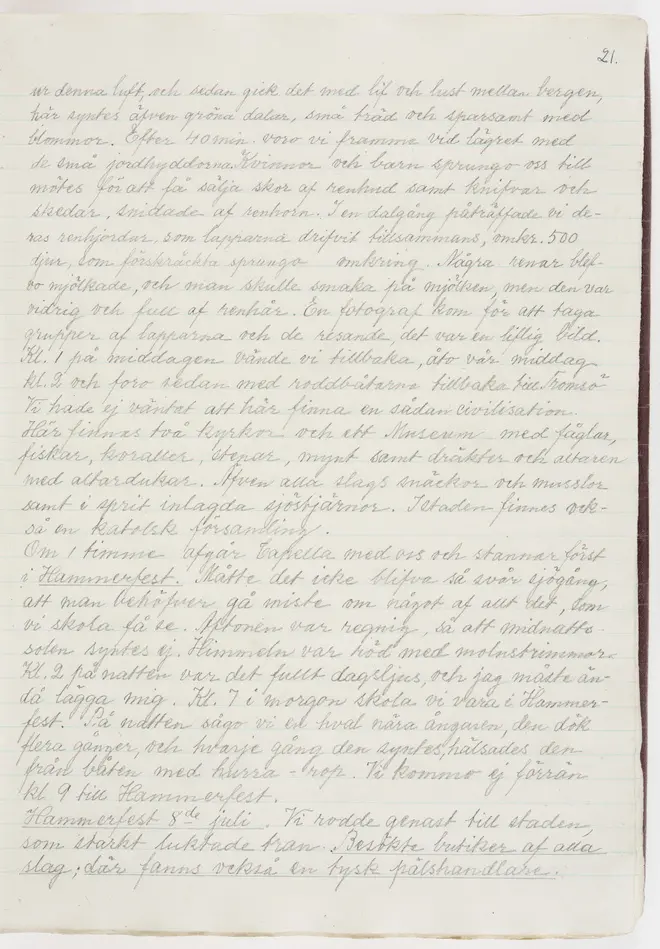 21.
ur denna luft, och sedan gick det med lif och lust mellan bergen,
här syntes äfven gröna dalar, små träd och sparsamt med
blommor. Efter 40 min. voro vi framme vid lägret med
de små jordhyddorna. Kvinnor och barn sprungo oss till
mötes för att få sälja skor af renhud samt knifvar och
skedar, snidade af renhorn. I en dalgång påträffade vi de-
ras renhjordar, som lapparna drifvit tillsammans, omkr. 500
djur, som förskräckta sprungo omkring. Några renar blef-
vo mjölkade, och man skulle smaka på mjölken, men den var
vidrig och full af renhår. En fotograf kom för att taga
grupper af lapparna och de resande, det var en liflig bild.
Kl. 1 på middagen vände vi tillbaka, åto vår middag
kl. 2 och foro sedan med roddbåtarna tillbaka till Tromsö
Vi hade ej väntat att här finna en sådan civilisation.
Här finnas två kyrkor och ett Museum med fåglar,
fiskar, koraller, stenar, mynt samt dräkter och altaren
med altardukar. Äfven alla slags snäckor och musslor
samt i sprit inlagda sjöstjärnor. I staden finnes ock-
så en katolsk församling.
Om 1 timme afgår Capella med oss och stannar först
i Hammerfest. Måtte det icke blifva så svår sjögång,
att man behöfver gå miste om något af allt det, som
vi skola få se. Aftonen var regnig, så att midnatts-
solen syntes ej. Himmeln var röd med molnstrimmor.
Kl. 2 på natten var det fullt dagsljus, och jag måste än-
då lägga mig. Kl. 7 i morgon skola vi vara i Hammer-
fest. På natten sågo vi en hval nära ångaren, den dök
flera gånger, och hvarje gång den syntes, hälsades den
från båten med hurra-rop. Vi kommo ej förrän
kl 9 till Hammerfest.
Hammerfest 8de juli. Vi rodde genast till staden,
som starkt luktade tran. Besökte butiker af alla
slag; där fanns också en tysk pälshandlare.